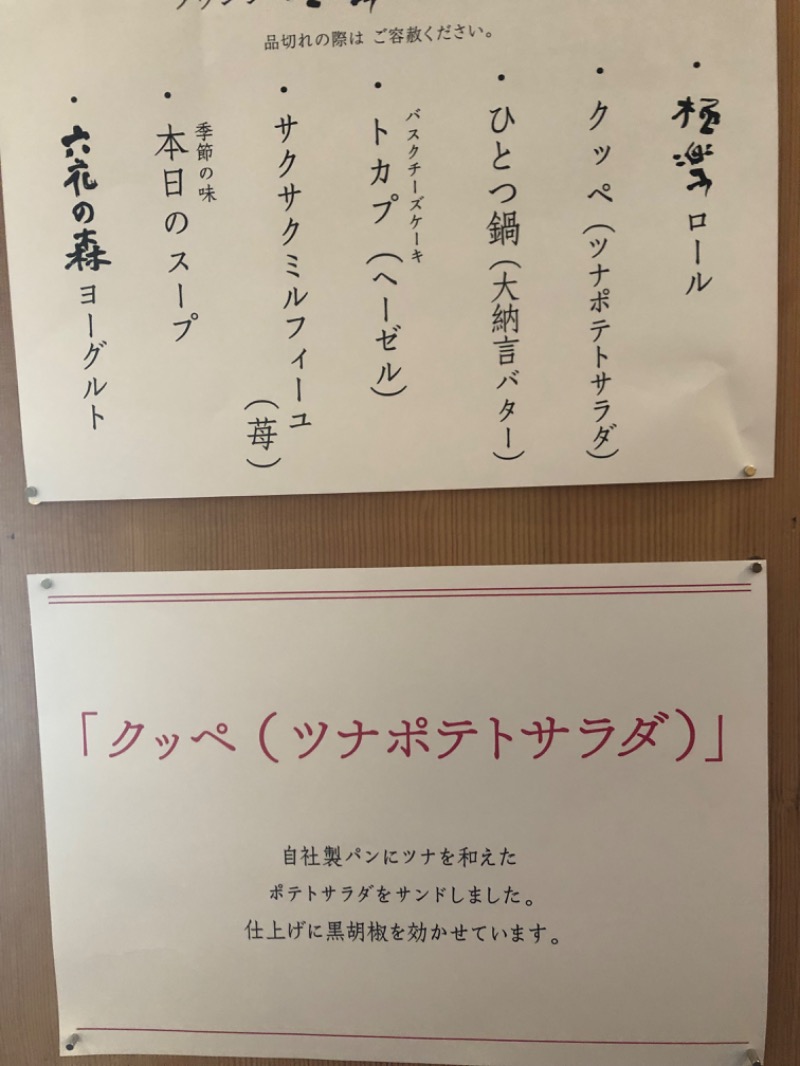 品切れの際は ご容赦ください。
・極楽ロール
・クッペ（ツナポテトサラダ）
・ひとつ鍋（大納言バター）
バスクチーズケーキ
・トカプ（ヘーゼル）
・サクサクミルフィーユ
（苺）
季節の味
・本日のスープ
・六花の森ヨーグルト
「クッペ（ツナポテトサラダ）」
自社製パンにツナを和えた
ポテトサラダをサンドしました。
仕上げに黒胡椒を効かせています。